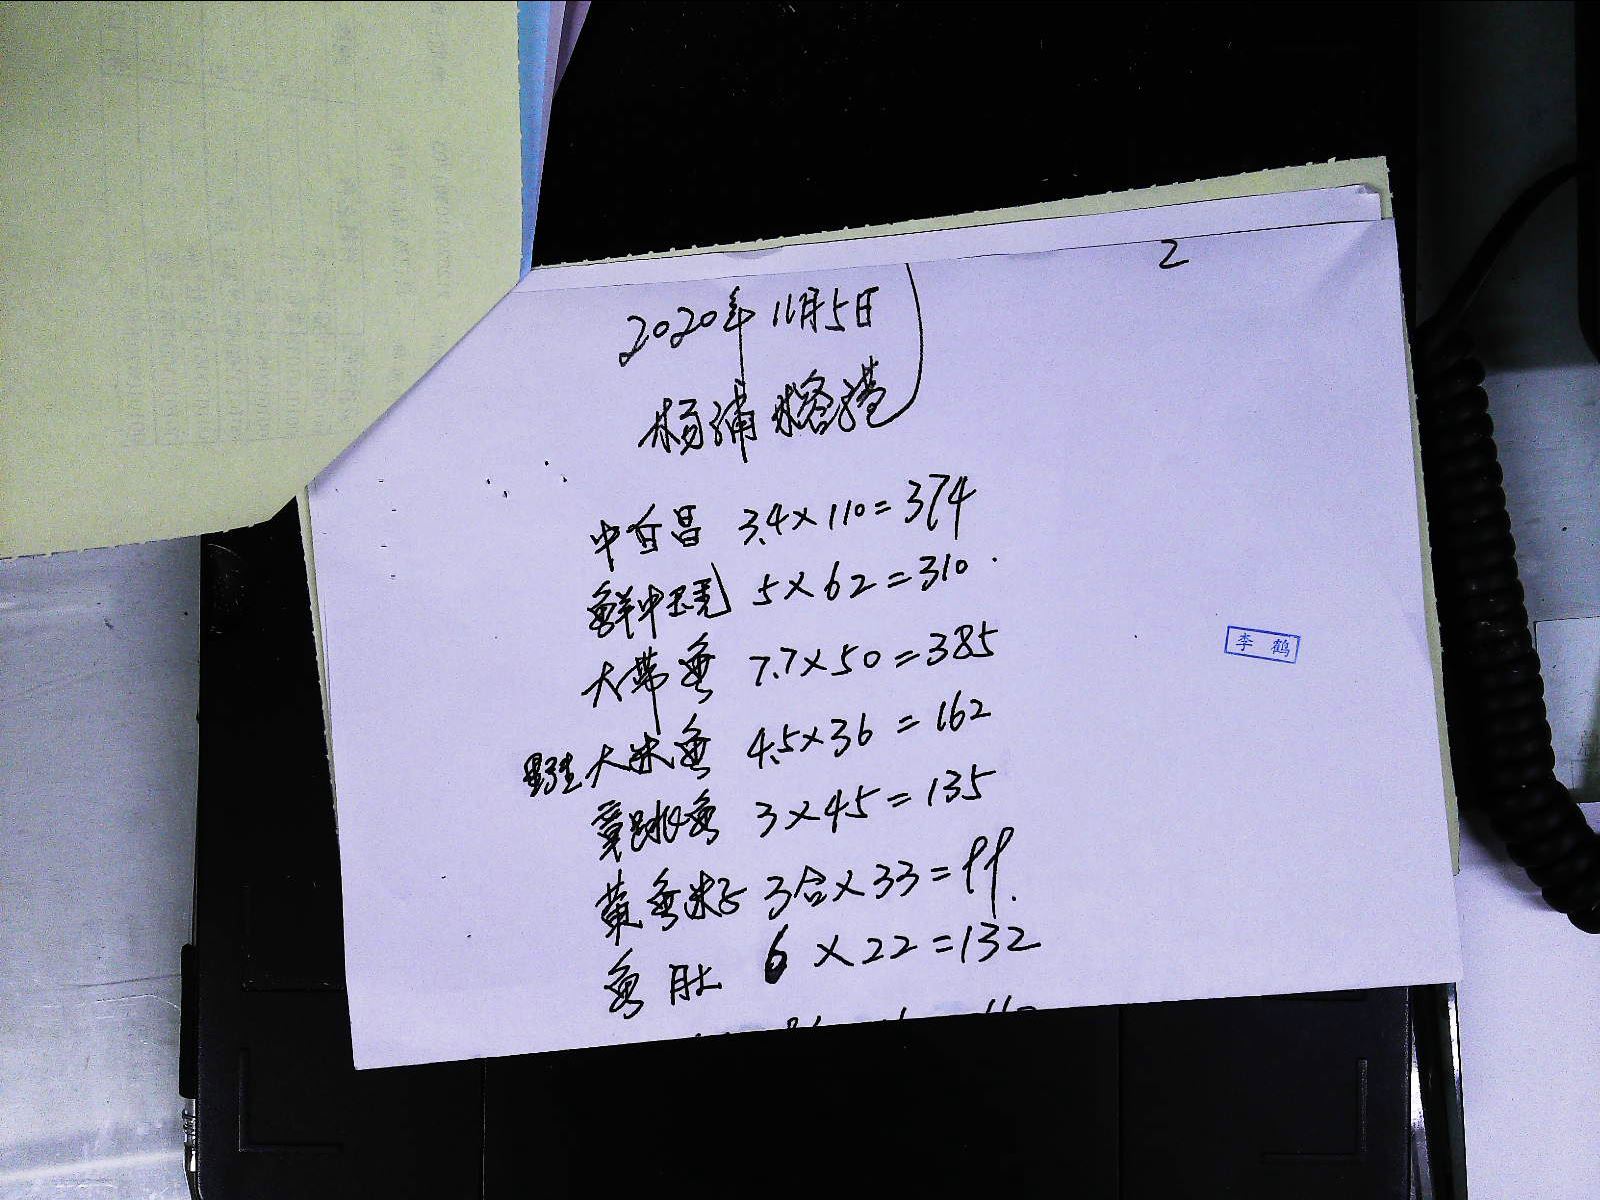 2
2020年11月5日
杨浦榕港
中白昌 3.4×110=374
鲜中 5×62=310
大带鱼 7.7×50=385
野生大米鱼 4.5×36=162
章跳鱼 3×45=135
黄鱼米子 3合×33=99.
鱼肚 6×22=132
李鹤